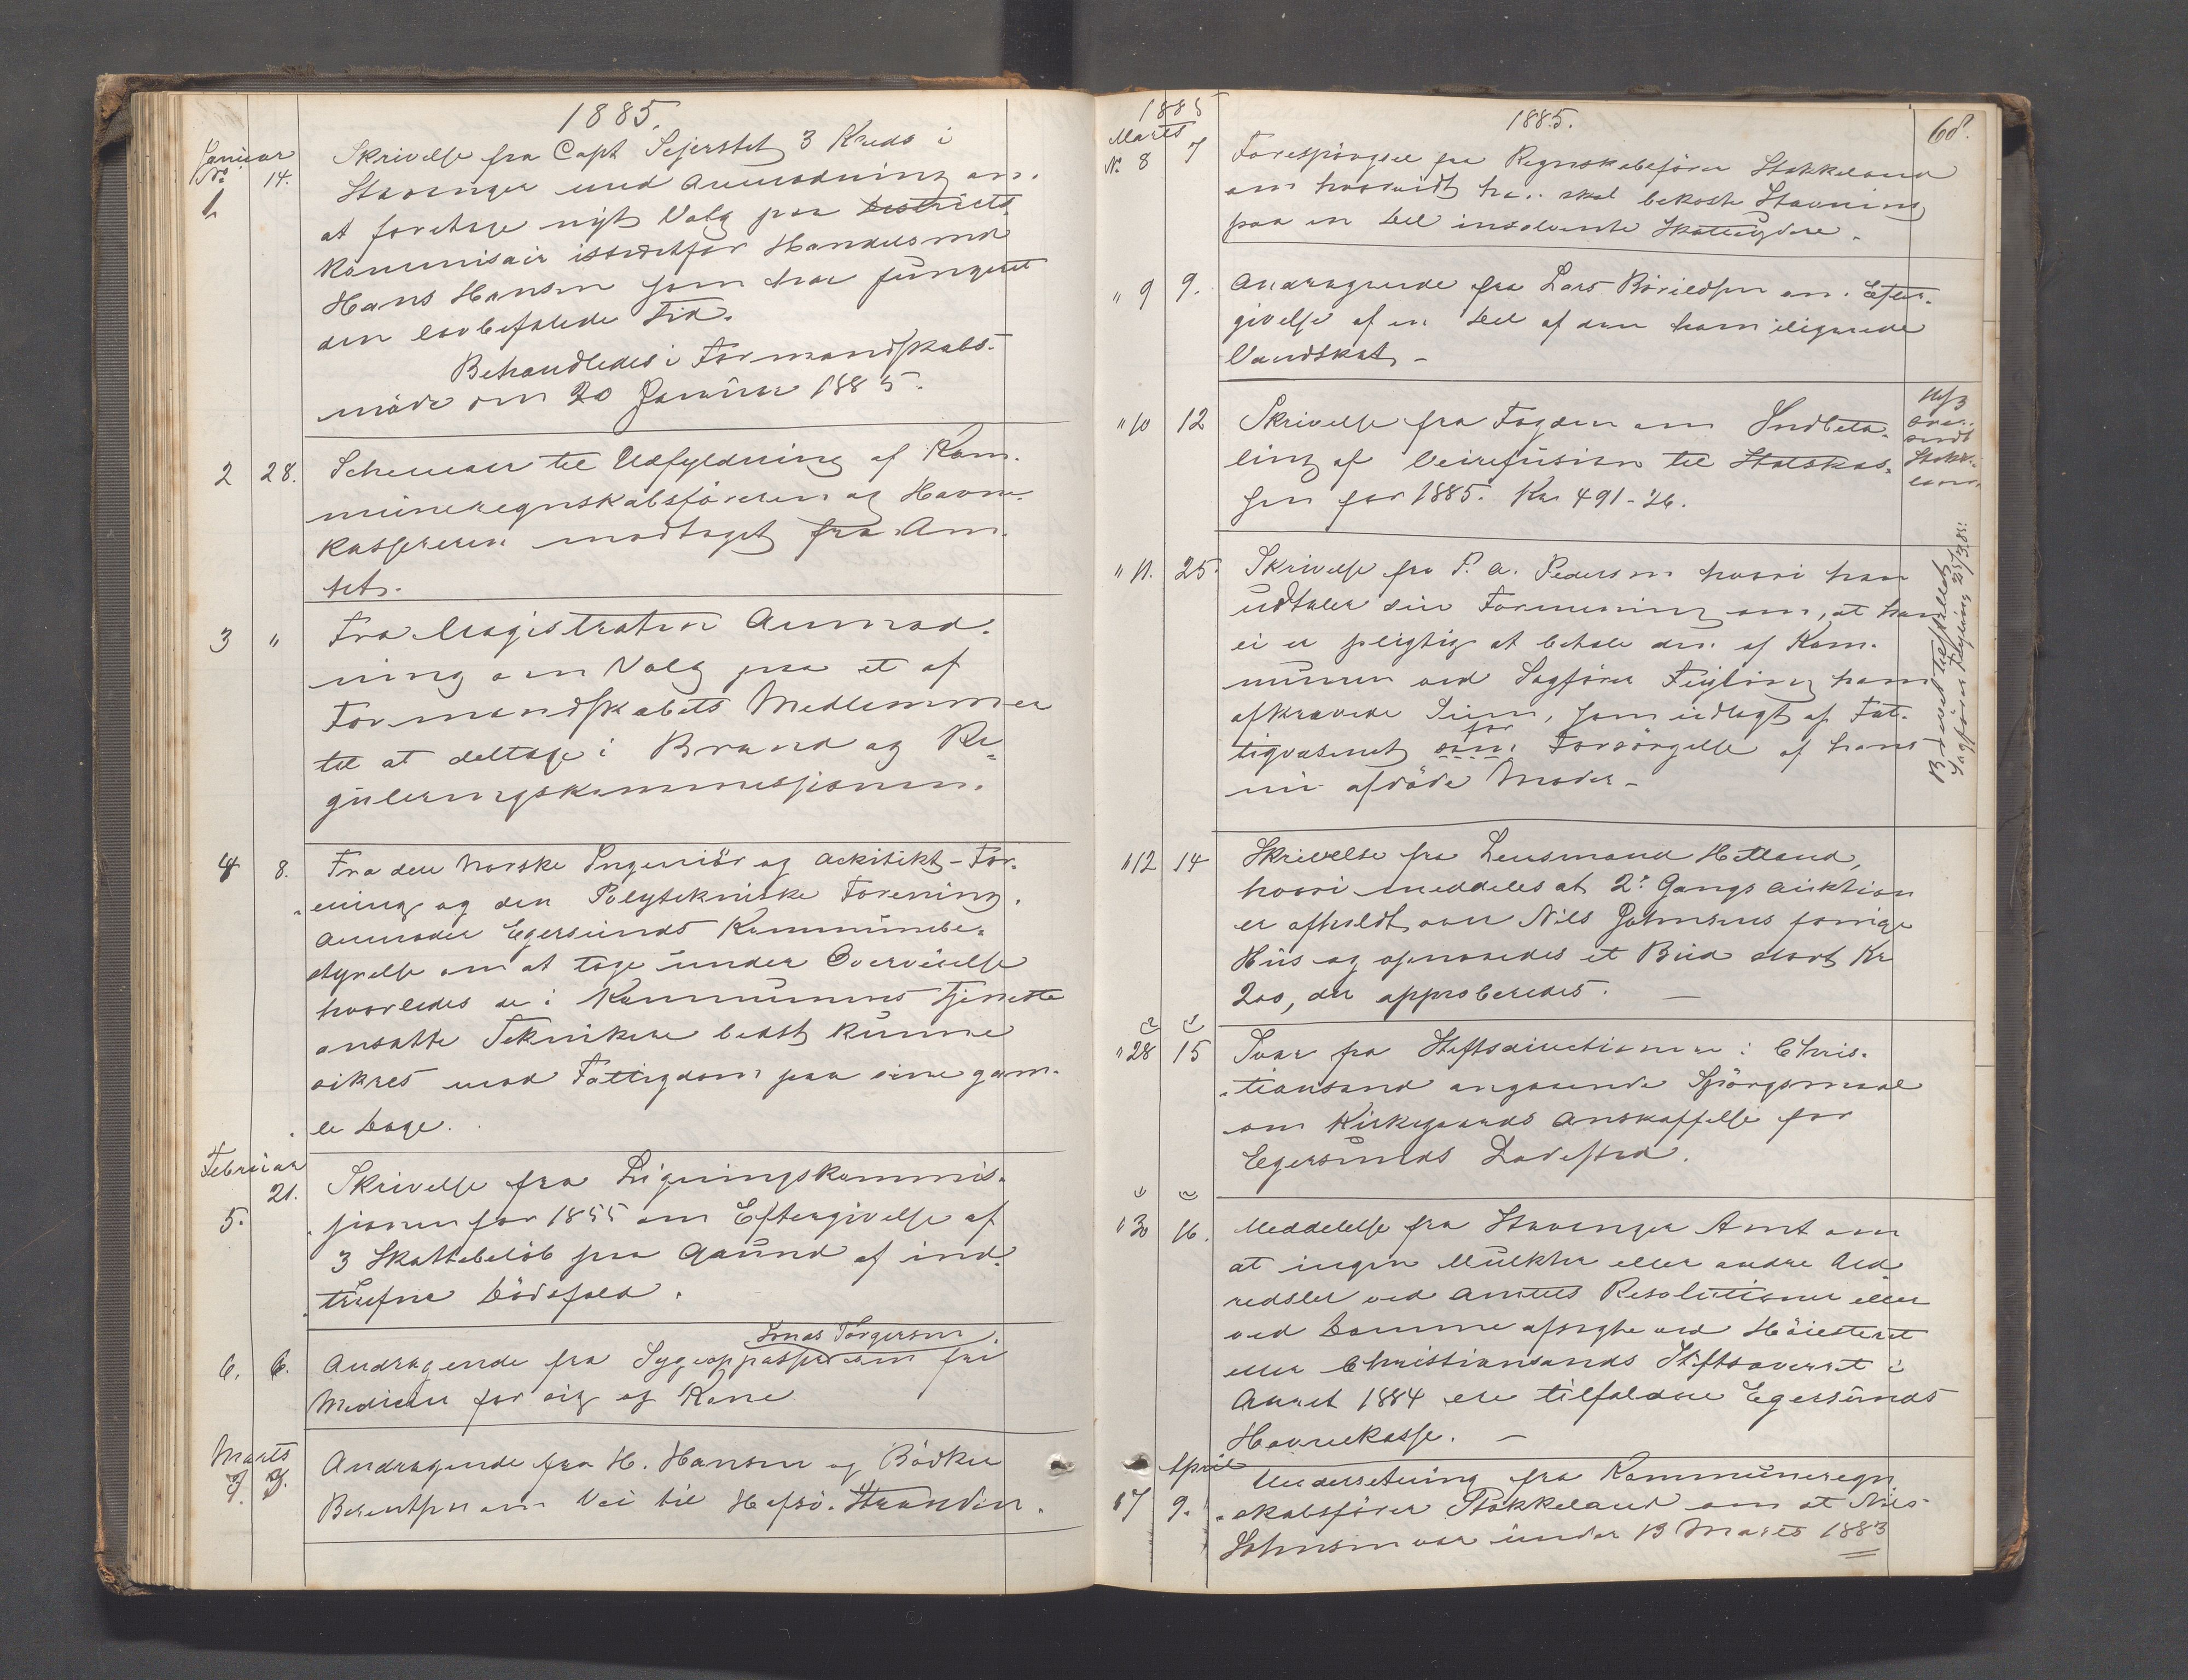 1885.
Januar
No 14.
1.
Skrivelse fra Capt Sejerstet 3 Kreds i
Stavanger med Anmodning om
at foretage nyt Valg paa Districts
Kommisair istedetfor Handelsmd
Hans Hansen som har fungeret
den lovbefalede Tid.
Behandledes i Formandskabs-
møde den 20 Januar 1885.
2 28. Schemaer til Udfyldning af Kom-
muneregnskabsføreren og Havne-
kassereren modtaget fra Am-
tet.
3 " Fra Magistraten Anmod-
ning om Valg paa et af
Formandskabets Medlemmer
til at deltage i Brand og Re-
guleringskommissionen.
4 8. Fra den Norske Ingeniör og Arkitekt-For-
ening og den Polytekniske Forening.
Anmoder Egersunds Kommunebe-
styrelse om at tage under Overveielse
hvorledes de i Kommunens Tjeneste
ansatte Teknikere bedst kunne
sikres mod Fattigdom paa sine gam-
le Dage.
Februar
21.
5.
Skrivelse fra Ligningskommis-
sionen for 1855 om Eftergivelse af
3 Skattebeløb paa Grund af ind-
trufne Dödsfald.
Jonas Torgersen
6. 6. Andragende fra Sygeoppasser om fri
Medicin for sig og Kone
Marts
7. 7.
Andragende fra H. Hansen og Bödker
Berentsen om Vei til Hafsö-Stranden.
1885
Marts
1885.
68.
No 8 7 Forespörgsel fra Regnskabsförer Stokkeland
om hvorvidt han skal bekoste Stavning
paa en Del insolvente Skatteydere.
" 9 9. Andragende fra Lars Böildsen om Efter-
givelse af en Del af den ham ilignede
Vandskat -
" 10 12 Skrivelse fra Fogden om Indbeta-
ling af Veirefusion til Statskas-
sen for 1885. Kr 491-26.
11/3
Over-
sendt
Stokke-
land
" 11. 25. Skrivelse fra P. A. Pedersen hvori han
udtaler sin Formening om, at han
ei er pligtig at betale den af Kom-
munen ved Sagförer Feyling ham
afkrævede Sum, som udlagt af Fat-
tigvæsenet som for Forsörgelse af hans
nu afdöde Moder -
Brevet tilstillet
Sagförer Feyling 25/3 85.
" 12 14 Skrivelse fra Lensmand Hetland,
hvori meddeles at 2. Gangs Auktion
er afholdt over Nils Johnsens forrige
Hus og opnaaedes et Bud stort Kr
200, der approberedes. -
" 28 15 Svar fra Stiftsdirectionen i Chris-
tiansand angaaende Spörgsmaal
om Kirkegaards Anskaffelse for
Egersunds Ladested.
" 30 16. Meddelelse fra Stavanger Amt om
at ingen Mulkter eller andre Ud-
redsler ved Amtets Resolutioner eller
ved Domme afsagte ved Höiesteret
eller Christiansands Stiftsoverret i
Aaret 1884 ere tilfaldne Egersunds
Havnekasse. -
April
17 9. Underretning fra Kommuneregn-
skabsförer Stokkeland om at Nils
Johnsen var under 13 Marts 1883